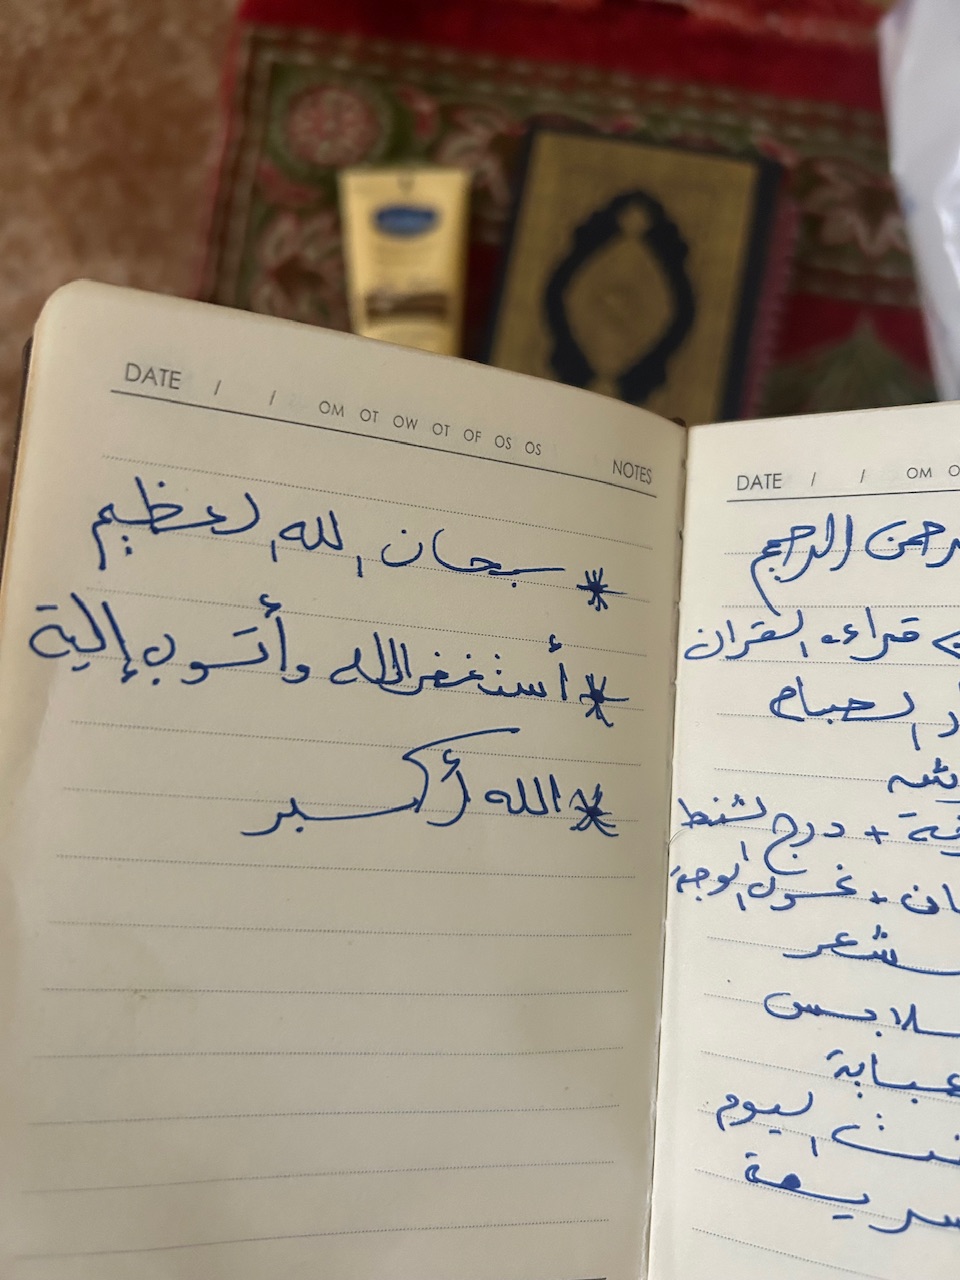 DATE / / OM OT OW OT OF OS OS
NOTES
* سبحان الله العظيم
* أستغفرالله وأتوب إلية
* الله أكبر
DATE / / OM
الرحيم
قراءه القران
الصباح
+ درج الشنط
+ غسول الوجه
شعر
عباية
اليوم
سريعة